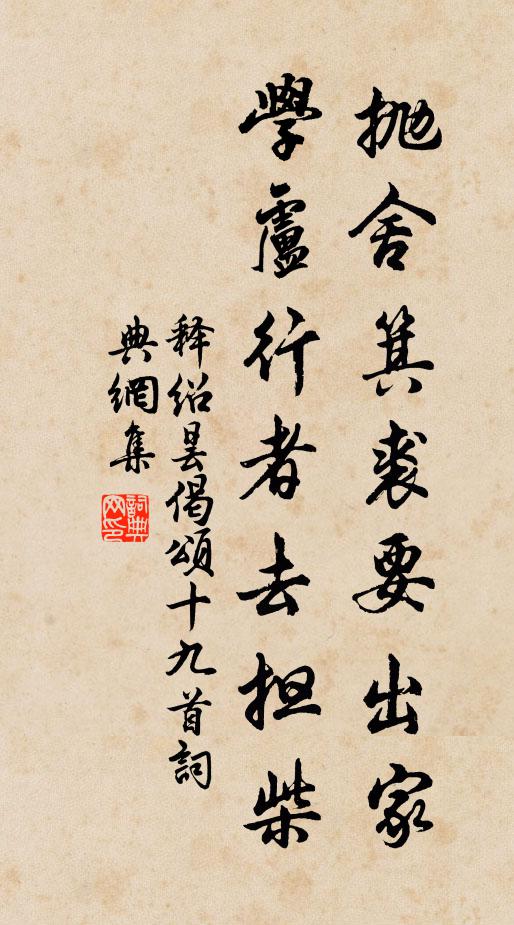 抛舍箕裘要出家
學盧行者去担柴
释绍昙偈頌十九首詞
典網集
詞典
网印